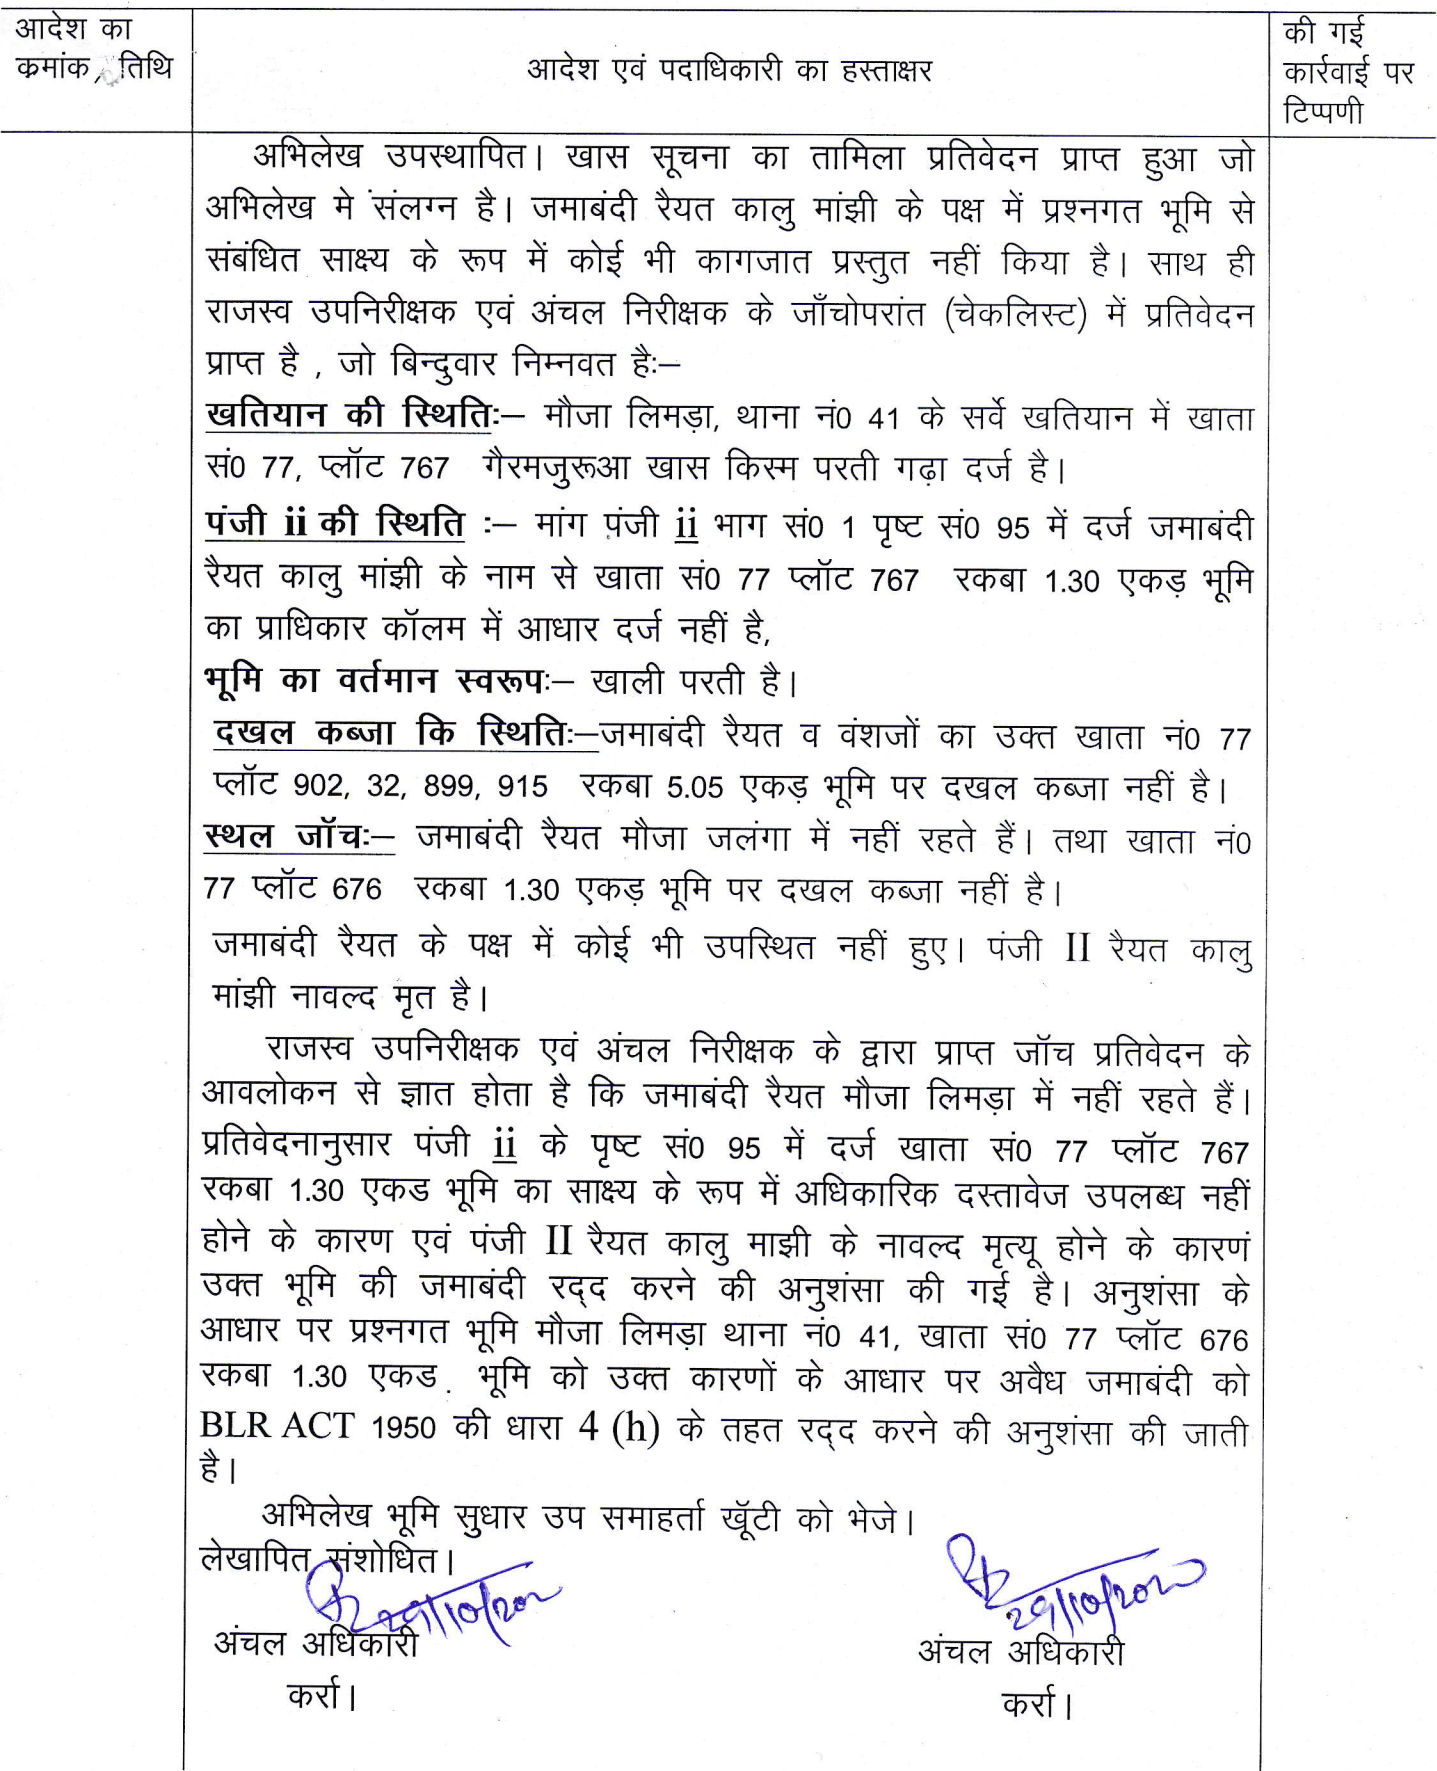 आदेश का
कमांक, तिथि
आदेश एवं पदाधिकारी का हस्ताक्षर
की गई
कार्रवाई पर
टिप्पणी
अभिलेख उपस्थापित। खास सूचना का तामिला प्रतिवेदन प्राप्त हुआ जो
अभिलेख मे संलग्न है। जमाबंदी रैयत कालु मांझी के पक्ष में प्रश्नगत भूमि से
संबंधित साक्ष्य के रूप में कोई भी कागजात प्रस्तुत नहीं किया है। साथ ही
राजस्व उपनिरीक्षक एवं अंचल निरीक्षक के जाँचोपरांत (चेकलिस्ट) में प्रतिवेदन
प्राप्त है , जो बिन्दुवार निम्नवत हैः–
खतियान की स्थितिः– मौजा लिमड़ा, थाना नं0 41 के सर्वे खतियान में खाता
सं0 77, प्लॉट 767 गैरमजुरूआ खास किस्म परती गढ़ा दर्ज है।
पंजी ii की स्थिति :– मांग पंजी ii भाग सं0 1 पृष्ट सं0 95 में दर्ज जमाबंदी
रैयत कालु मांझी के नाम से खाता सं0 77 प्लॉट 767 रकबा 1.30 एकड़ भूमि
का प्राधिकार कॉलम में आधार दर्ज नहीं है,
भूमि का वर्तमान स्वरूपः– खाली परती है।
दखल कब्जा कि स्थितिः–जमाबंदी रैयत व वंशजों का उक्त खाता नं0 77
प्लॉट 902, 32, 899, 915 रकबा 5.05 एकड़ भूमि पर दखल कब्जा नहीं है।
स्थल जॉचः– जमाबंदी रैयत मौजा जलंगा में नहीं रहते हैं। तथा खाता नं0
77 प्लॉट 676 रकबा 1.30 एकड़ भूमि पर दखल कब्जा नहीं है।
जमाबंदी रैयत के पक्ष में कोई भी उपस्थित नहीं हुए। पंजी II रैयत कालु
मांझी नावल्द मृत है।
राजस्व उपनिरीक्षक एवं अंचल निरीक्षक के द्वारा प्राप्त जॉच प्रतिवेदन के
आवलोकन से ज्ञात होता है कि जमाबंदी रैयत मौजा लिमड़ा में नहीं रहते हैं।
प्रतिवेदनानुसार पंजी ii के पृष्ट सं0 95 में दर्ज खाता सं0 77 प्लॉट 767
रकबा 1.30 एकड भूमि का साक्ष्य के रूप में अधिकारिक दस्तावेज उपलब्ध नहीं
होने के कारण एवं पंजी II रैयत कालु माझी के नावल्द मृत्यू होने के कारणं
उक्त भूमि की जमाबंदी रद्द करने की अनुशंसा की गई है। अनुशंसा के
आधार पर प्रश्नगत भूमि मौजा लिमड़ा थाना नं0 41, खाता सं0 77 प्लॉट 676
रकबा 1.30 एकड . भूमि को उक्त कारणों के आधार पर अवैध जमाबंदी को
BLR ACT 1950 की धारा 4 (h) के तहत रद्द करने की अनुशंसा की जाती
है।
अभिलेख भूमि सुधार उप समाहर्ता खूॅटी को भेजे।
लेखापित संशोधित।
29/10/202
29/10/2020
अंचल अधिकारी
अंचल अधिकारी
कर्रा।
कर्रा।